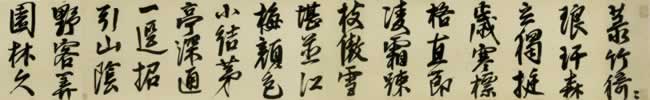 菉竹猗〻
琅玕森
立獨挺
歲寒標
格直節
凌霜踈
枝傲雪
堪並江
梅顏色
小結茅
亭深通
一逕招
引山陰
野客弄
園林久